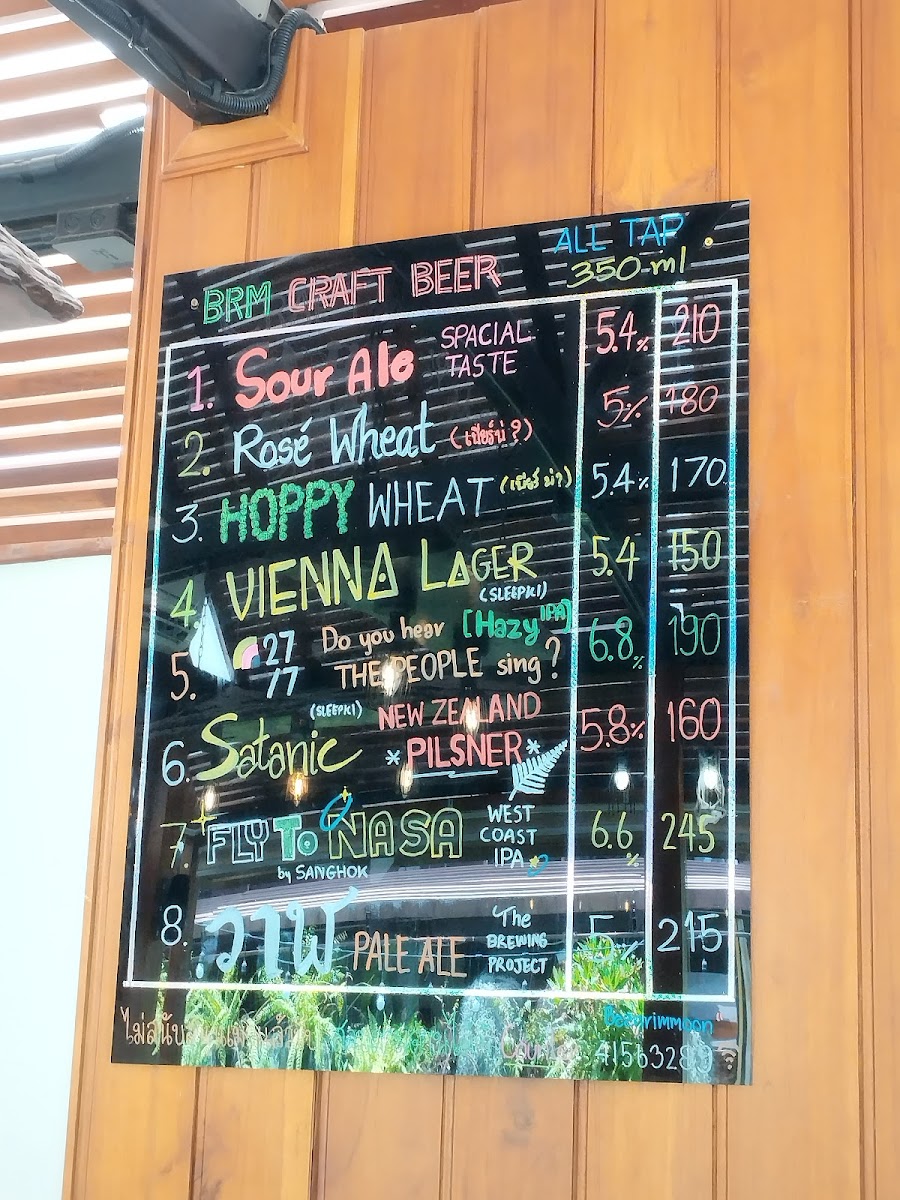 BRM CRAFT BEER
ALL TAP
350 ml
1. Sour Ale SPACIAL TASTE 5.4% 210
2. Rosé Wheat (เบียร์บ่?) 5% 180
3. HOPPY WHEAT (เบียร์บ่?) 5.4% 170
4. VIENNA LAGER 5.4 150
(SLEEPKI)
5. 27 77 Do you hear [Hazy IPA] 6.8% 190
THE PEOPLE sing?
(SLEEPKI)
6. Satanic NEW ZEALAND *PILSNER* 5.8% 160
7. FLY To NASA WEST COAST IPA 6.6% 245
by SANGHOK
8. วาฬ PALE ALE The BREWING PROJECT 5% 215